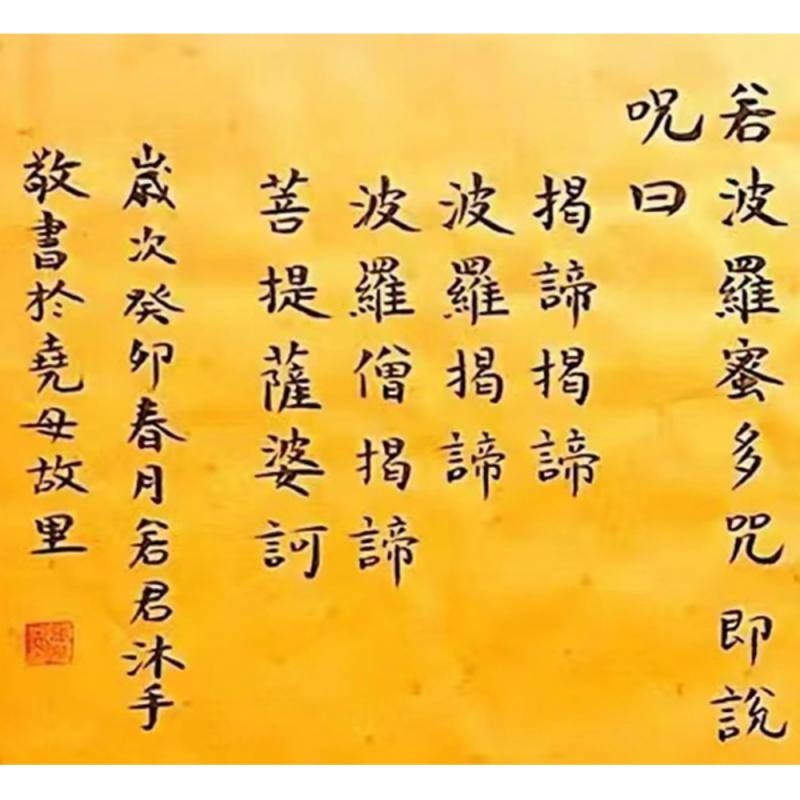 若波羅蜜多咒即說
呪曰
揭諦揭諦
波羅揭諦
波羅僧揭諦
菩提薩婆訶
歲次癸卯春月若君沐手
敬書於堯母故里